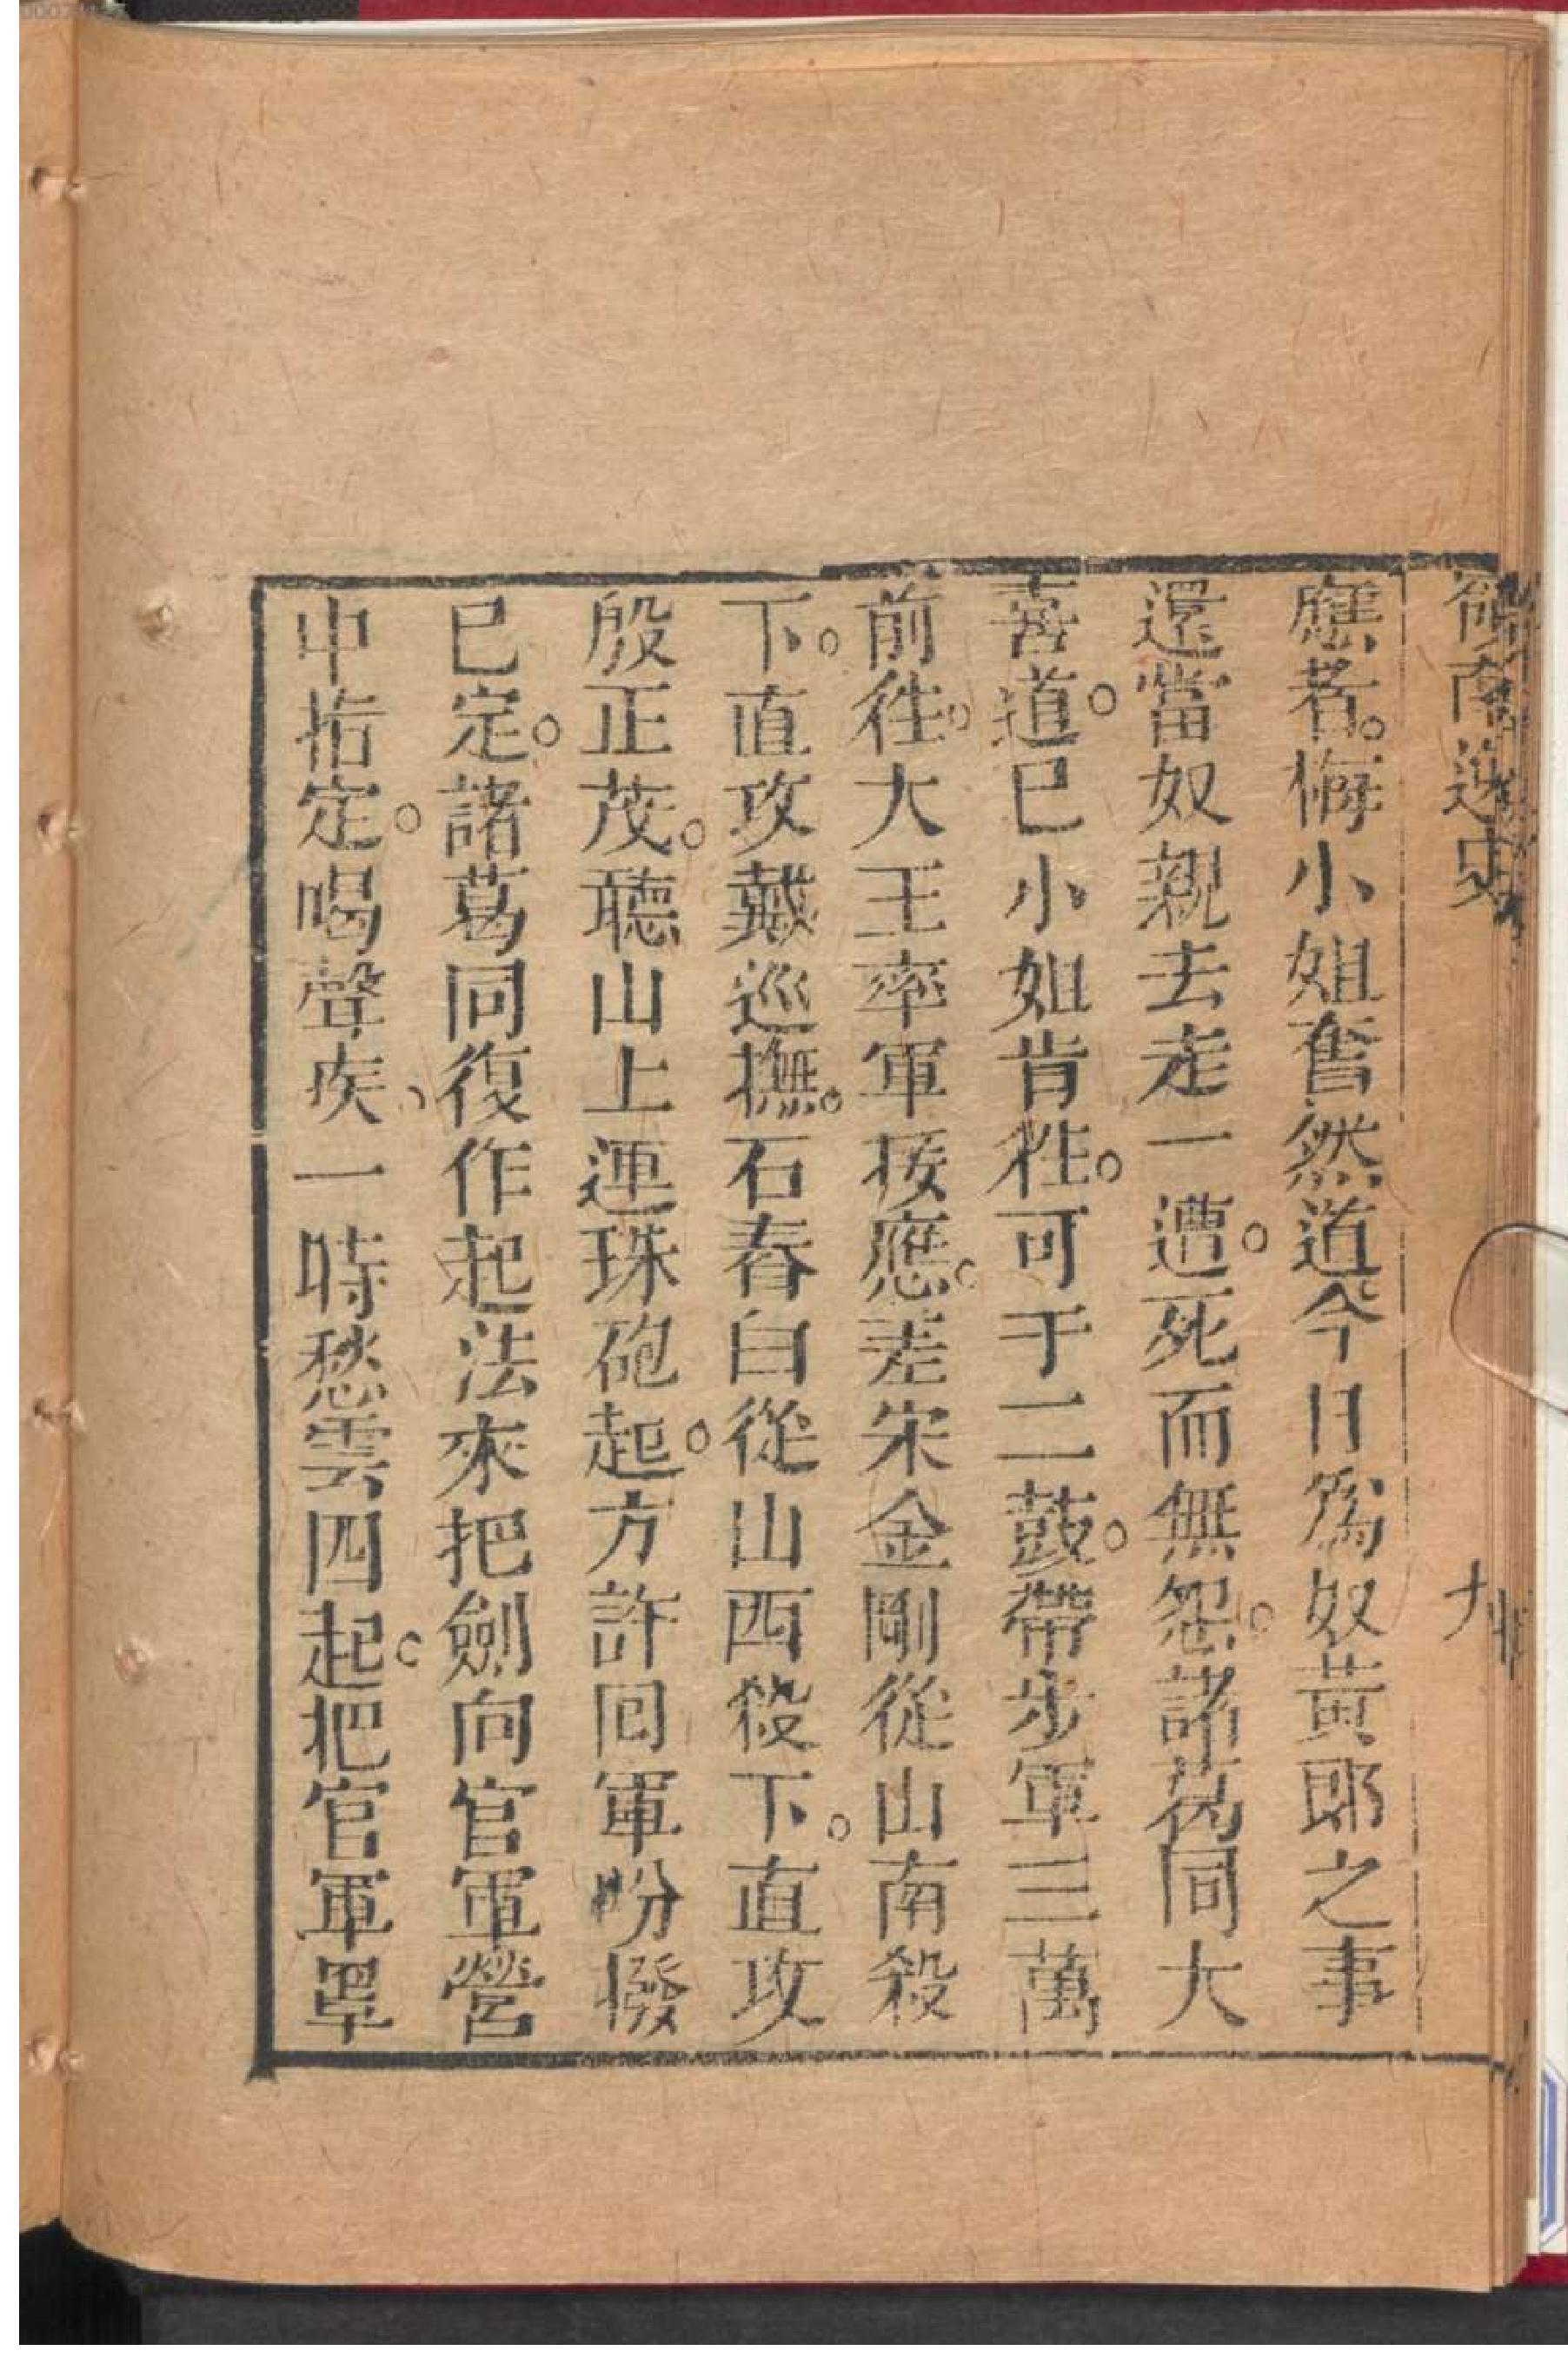 嶺南逸史
九
應者。梅小姐奮然道。今日為奴黃郎之事
還當奴親去走一遭。死而無怨。諸葛同大
喜道。巳小姐肯徃。可于二鼓。帶步軍三萬
前徃。大王率軍接應。差宋金剛從山南殺
下。直攻戴巡撫。石春白從山西殺下。直攻
殷正茂。聽山上連珠砲起。方許回軍。吩撥
已定。諸葛同復作起法來把劍向官軍營
中指定。喝聲疾、一時愁雲四起。把官軍罩